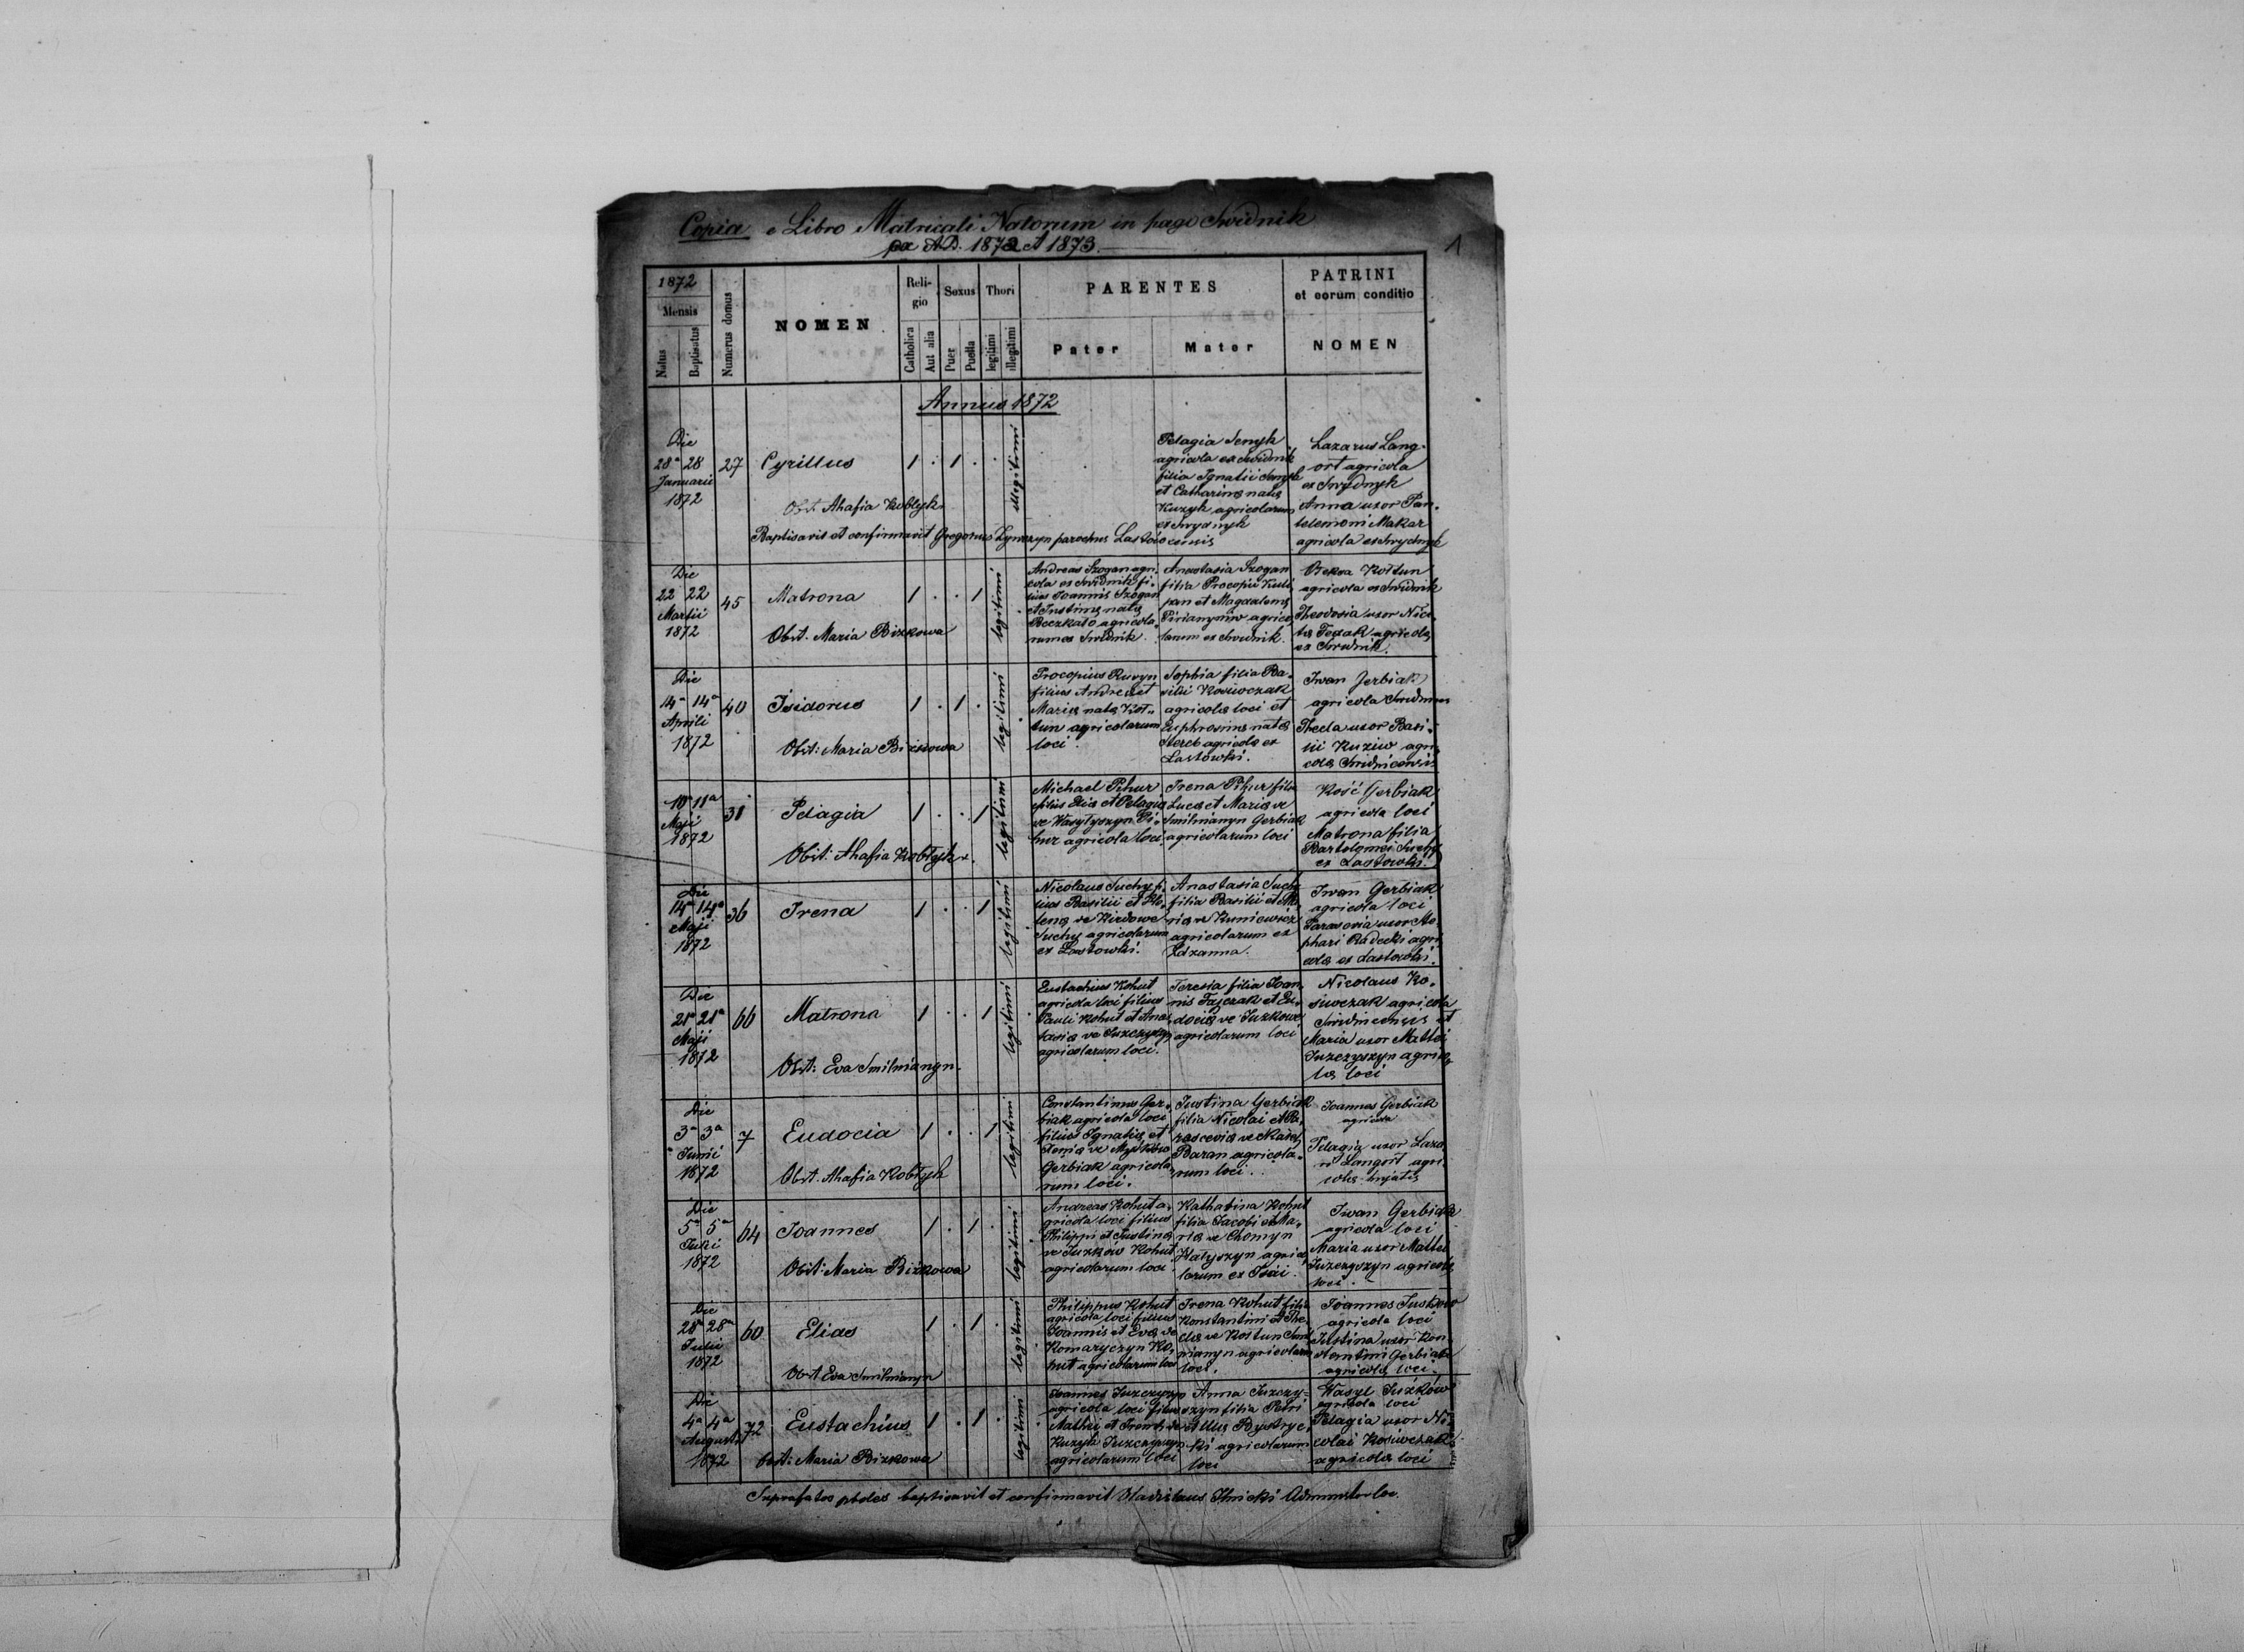 Copia e Libro Matricali Natorum in pago Swidnik
pro A.D. 1872 et 1873.
1
1872
Mensis
Natus
Baptisatus
Numerus domus
NOMEN
Religio
Catholica
Aut alia
Sexus
Puer
Puella
Thori
legitimi
illegitimi
PARENTES
Pater
Mater
PATRINI
et eorum conditio
NOMEN
Annus 1872
Die
28a 28
Januarii
1872
27
Cyrillus
1 . 1 .
illegitimi
Obst. Ahafia Kobłyk
Baptisavit et confirmavit Gregorius parochus
Pelagia Senyk
agricola ex Swidnik
filia Ignatii Senyk
et Catharina nata
Kuzyk agricolarum
ex Swydnyk
Lazarus Lang-
ort agricola
ex Swydnyk
Anna uxor Pan-
telemoni Makar
agricola ex Swydnyk
Die
22 22
Martii
1872
45
Matrona
1 . . 1
legitimi
Obst. Maria Bizkowa
Andreas Szogan agri-
cola ex Swidnik fi-
lius Joannis Szogan
et Justina nata
agricola-
rum ex Swidnik.
Anastasia Szogan
filia Procopii Kuli
pan et Magdalena
agrico
larum ex Swidnik.
Kostun
agricola ex Swidnik
Theodosia uxor Nico-
lai agricola
ex Swidnik.
Die
14a 14a
Aprili
1872
40
Isidorus
1 . 1 .
legitimi
Obst: Maria Bizkowa
Procopius
filius Andreae et
Maria nata Kos-
tun agricolarum
loci.
Sophia filia Ba-
silii Kosiwczak
agricola loci et
Euphrosina nata
agricola ex
Lastowki.
Iwan Jerbiak
agricola
Thecla uxor Basi-
lii Kuziw agri-
cola Swidnicensis
10a 11a
Maji
1872
31
Pelagia
1 . . 1
legitimi
Obst: Ahafia Kobłyk
Michael Pihur
filius Elia et Pelagia
de Wasylyszyn Pi-
hur agricola loci
Irena Pihur filia
Luca et Maria de
Smilnianyn Gerbiak
agricolarum loci
Kość Gerbiak
agricola loci
Matrona filia
Bartolomei Suchy
ex Lastowki.
Die
14a 14a
Maji
1872
36
Irena
1 . . 1
legitimi
Nicolaus Suchy fi-
lius Basilii et He-
lena de
Suchy agricolarum
ex Lastowki.
Anastasia Suchy
filia Basilii et Ma
ria de Kuniewicz
agricolarum ex
Iwan Gerbiak
agricola loci
uxor
Radecki agri
cola ex Lastowki.
Die
21a 21a
Maji
1872
66
Matrona
1 . . 1
legitimi
Obst: Eva Smilnianyn
Eustachius Kohut
agricola loci filius
Pauli Kohut et Anas
tasia de
agricolarum loci.
Teresia filia Joan
nis et Eu-
docia de Juzkowe
agricolarum loci
Nicolaus Ko-
siwczak agricola
Swidnicensis et
Maria uxor Mathei
Juzczyszyn agrico
la loci
Die
3a 3a
Junii
1872
7
Eudocia
1 . . 1
legitimi
Obst. Ahafia Kobłyk
Constantinus Ger-
biak agricola loci
filius Ignatii et
Gerbiak agricola-
rum loci.
Justina Gerbiak
filia Nicolai et Pa
rascevia de
Baran agricola-
rum loci.
Joannes Gerbiak
agricola
Pelagia uxor Laza
ri Langort agri-
cola hujatis
Die
5a 5a
Julii
1872
64
Joannes
1 . 1 .
legitimi
Obst: Maria Bizkowa
Andreas Kohut a-
gricola loci filius
Philippi et Justina
de Juzków Kohut
agricolarum loci
Katharina Kohut
filia Jacobi et Ma-
ria de Chomyn
Hatyszyn agrico
larum ex
Iwan Gerbiak
agricola loci
Maria uxor Mathei
Juzczyszyn agricola
loci.
Die
28a 28a
Julii
1872
60
Elias
1 . 1 .
legitimi
Obst Eva Smilnianyn
Philippus Kohut
agricola loci filius
Joannis et Eva de
Komaryczyn Ko-
hut agricolarum loci
Irena Kohut filia
Konstantini et The
cla de Kostun Smil
nianyn agricolarum
loci.
Joannes Juskow
agricola loci
Justina uxor Kon-
stantini Gerbiak
agricola loci.
Die
4a 4a
Augusti
1872
72
Eustachius
1 . 1 .
legitimi
Obst: Maria Bizkowa
Joannes Juzczyszyn
agricola loci filius
Mathei et Irena de
Kuzyk Juzczyszyn
agricolarum loci
Anna Juzczy-
szyn filia Petri
Bystryc
ki agricolarum
loci
Wasyl Juzków
agricola loci
Pelagia uxor Ni
colai Kosiwczak
agricola loci
Suprafatas proles baptisavit et confirmavit Vladislaus Ilnicki Administrator loc.